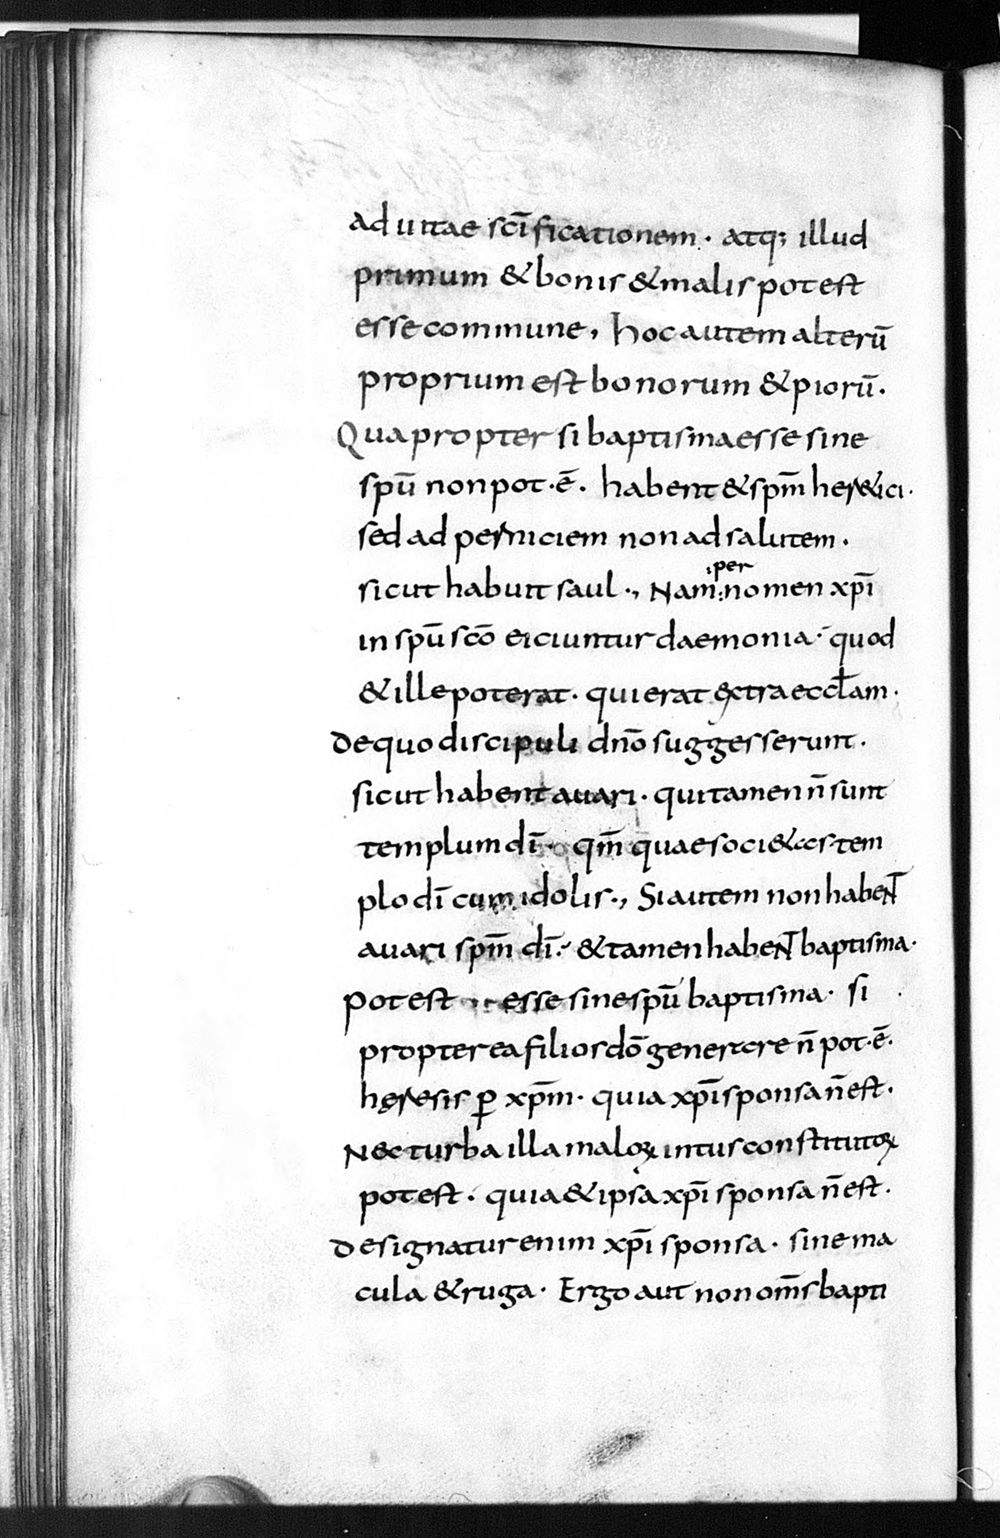 ad uitae scī ficationem · atq; illud
primum & bonis & malis potest
esse commune, hoc autem alterū
proprium est bonorum & piorū.
Quapropter si baptisma esse sine
spū non pot·ē. habent & spm̄ her&ici·
sed ad perniciem non ad salutem.
sicut habuit saul ·, Nam: per nomen xpī
in spū scō eiciuntur daemonia · quod
& ille poterat · qui erat extra eccl̄am ·
De quo discipuli dnō suggesserunt ·
sicut habent auari · qui tamen n̄ sunt
templum dī · qm̄ quae soci&as tem
plo dī cum idolis ·, Si autem non habent
auari spm̄ dī · & tamen habent baptisma ·
Potest esse sine spū baptisma · si
propterea filios dō generare n̄ pot·ē·
heresis ꝑ xpm̄ · quia xpī sponsa n̄ est ·
Nec turba illa maloꝝ intus constitutoꝝ
potest · quia & ipsa xpī sponsa n̄ est ·
Designatur enim xpī sponsa · sine ma
cula & ruga · Ergo aut non om̄s bapti